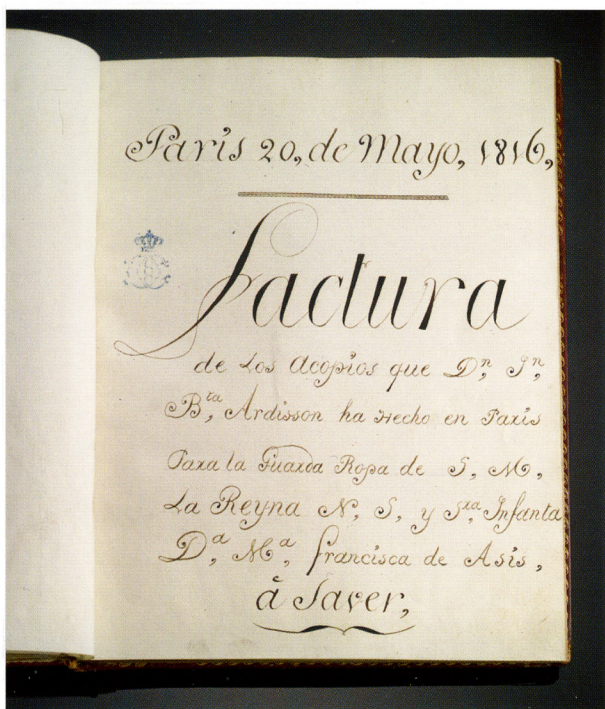 Paris 20, de Mayo, 1816,
Factura
de Los Acopios que D.ⁿ J.ⁿ,
B.ᵗᵃ, Ardisson ha Hecho en Paris
Para la Guarda Ropa de S, M,
La Reyna N, S, y S.ʳᵃ, Infanta
D.ᵃ, M.ᵃ, francisca de Asis,
á Saver,